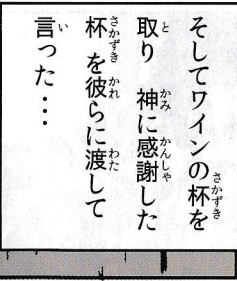 そしてワインの杯を
取り　神に感謝した
杯を彼らに渡して
言った・・・